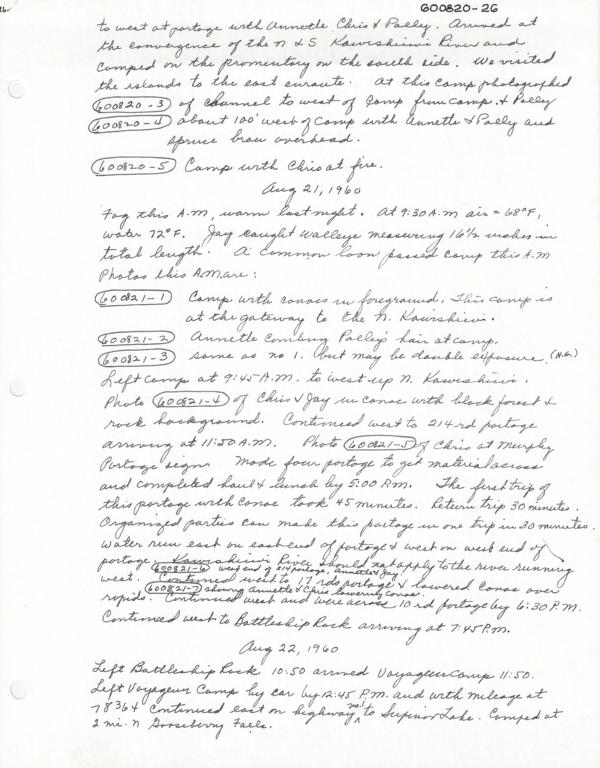 600820-26
to west at portage with Annette, Chris & Polley. Arrived at
the convergence of the N & S Kawishiwi River and
camped on the promentory on the south side. We visited
the islands to the east enroute. At this camp photographed
600820-3 of channel to west of camp from camp. & Polley
600820-4 about 100' west of camp with Annette & Polly and
spruce brow overhead.
600820-5 Camp with Chris at fire.
Aug 21, 1960
Fog this A.M, warm last night. At 9:30 A.M air = 68°F,
water 72°F. Jay caught Walleye measuring 16 1/2 inches in
total length. A common loon passed camp this A.M
Photos this A.M are:
600821-1 Camp with canoes in foreground. This camp is
at the gateway to the N. Kawishiwi.
600821-2 Annette combing Polley's hair at camp.
600821-3 same as no 1. but may be double exposure. (N.G.)
Left camp at 9:45 A.M. to west up N. Kawishiwi.
Photo 600821-4 of Chris & Jay in canoe with block forest &
rock background. Continued west to 214 rd portage
arriving at 11:50 A.M. Photo 600821-5 of Chris at Murphy
Portage sign. Made four portage to get material across
and completed haul & lunch by 5:00 P.M. The first trip of
this portage with canoe took 45 minutes. Return trip 30 minutes.
Organized parties can make this portage in one trip in 30 minutes.
Water run east on east end of portage & west on west end of
portage. Kawishiwi River should not apply to the river running
600821-6 west end of 214 portage, Annette & Jay.
west. Continued west to 17 rds portage & lowered canoe over
600821-7 showing Annette & Chris lowering canoe.
rapids. Continued west and were across 10 rd portage by 6:30 P.M.
Continued west to Battleship Rock arriving at 7:45 P.M.
Aug 22, 1960
Left Battleship Rock 10:50 arrived Voyageur Camp 11:50.
Left Voyageur Camp by car by 12:45 P.M. and with mileage at
78364 continued east on highway no. 1 to Superior Lake. Camped at
2 mi. N Gooseberry Falls.